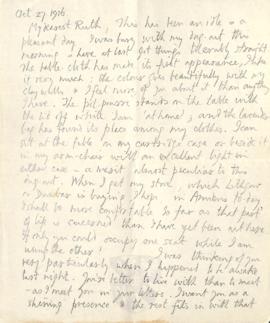 Oct 27 1916.
My dearest Ruth, This has been an idle & a
pleasant day. I was busy with my dug-out this
morning & have at last got things tolerably straight.
The table cloth has made its first appearance, I like
it very much; the colour goes beautifully with my
clay walls & I feel more of you about it than anything
I have. The pot pourri stands on the table with
the lid off while I am 'at home'; and the lavender
bag has found its place among my clothes. I can
sit at the table on my cartridge case or beside it
in my arm-chair with an excellent light in
either case – a merit almost peculiar to this
dug-out. When I get my stove, which Lithgow
or Dunbar is buying, I hope, in Amiens to-day
I shall be more comfortable so far as that part
of life is concerned than I have yet been out here
If only you could occupy one seat while I am
using the other! I was thinking of you
very particularly when I happened to lie awake
last night. You're better to live with than to meet
– as I meet you in your letters. I want you as a
shining presence & the rest fits in with that